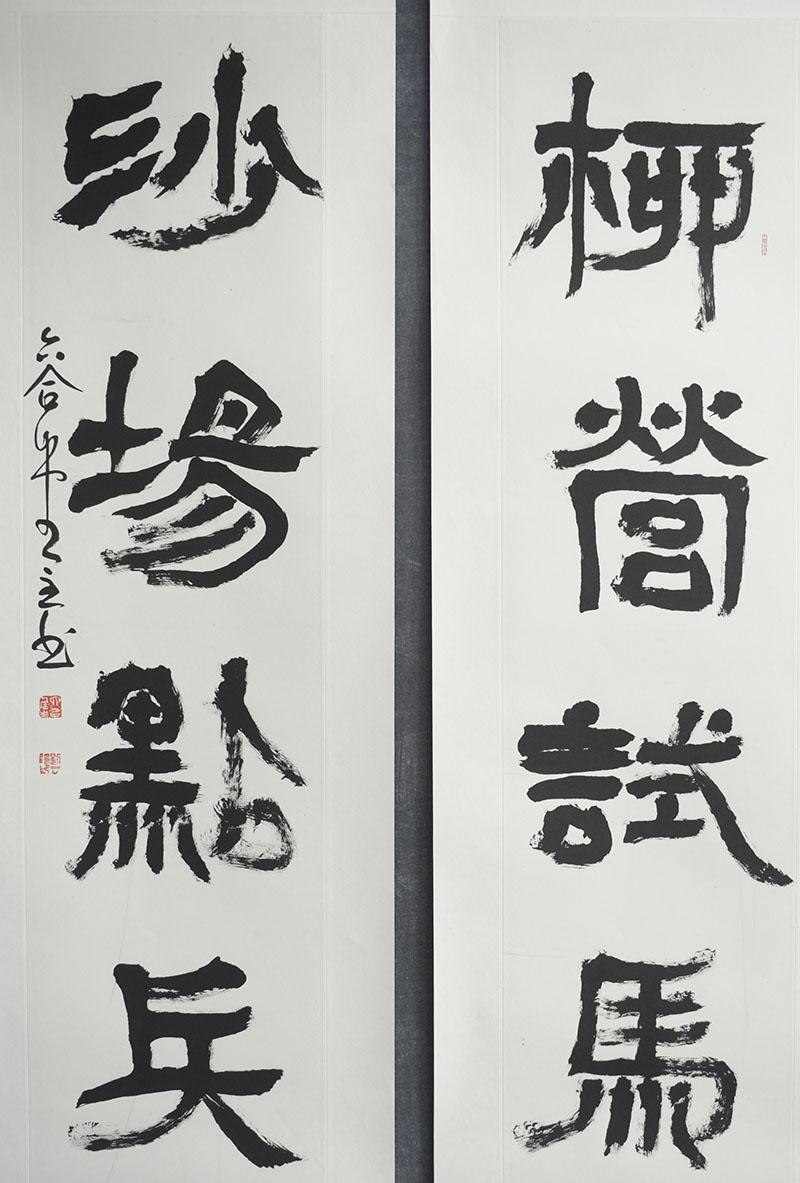 柳營試馬
沙場點兵
六合
主书